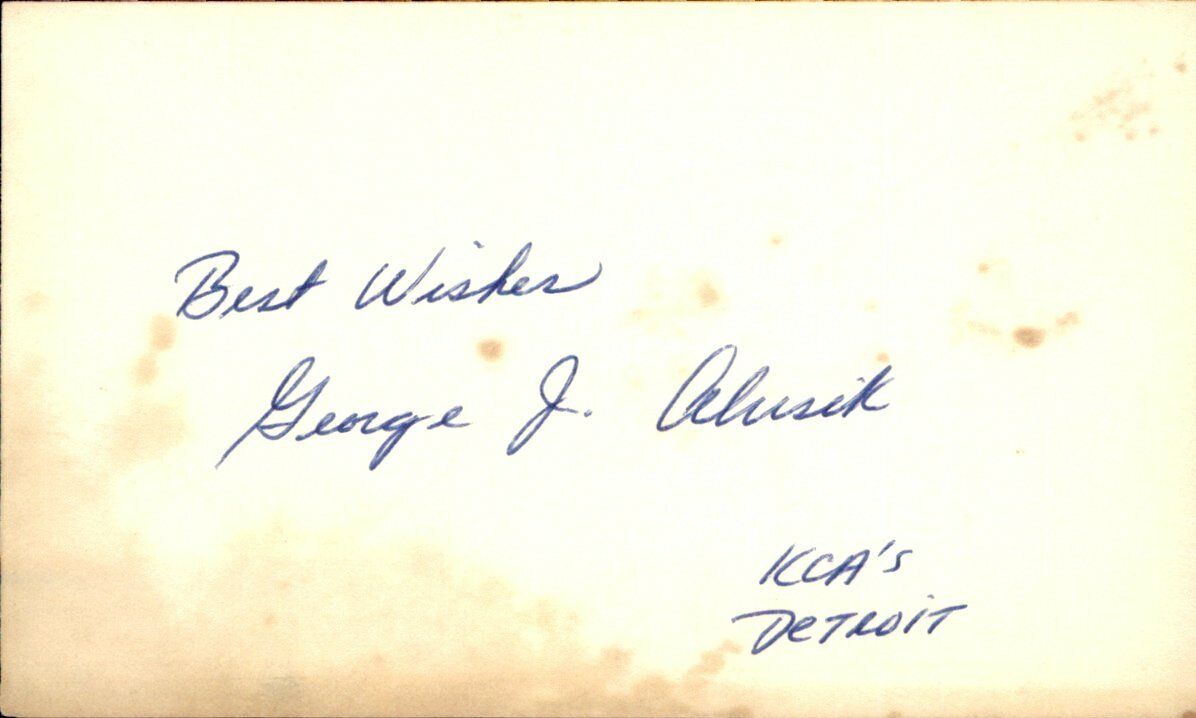 Best Wishes
George J. Alusik
KCA's
DETROIT